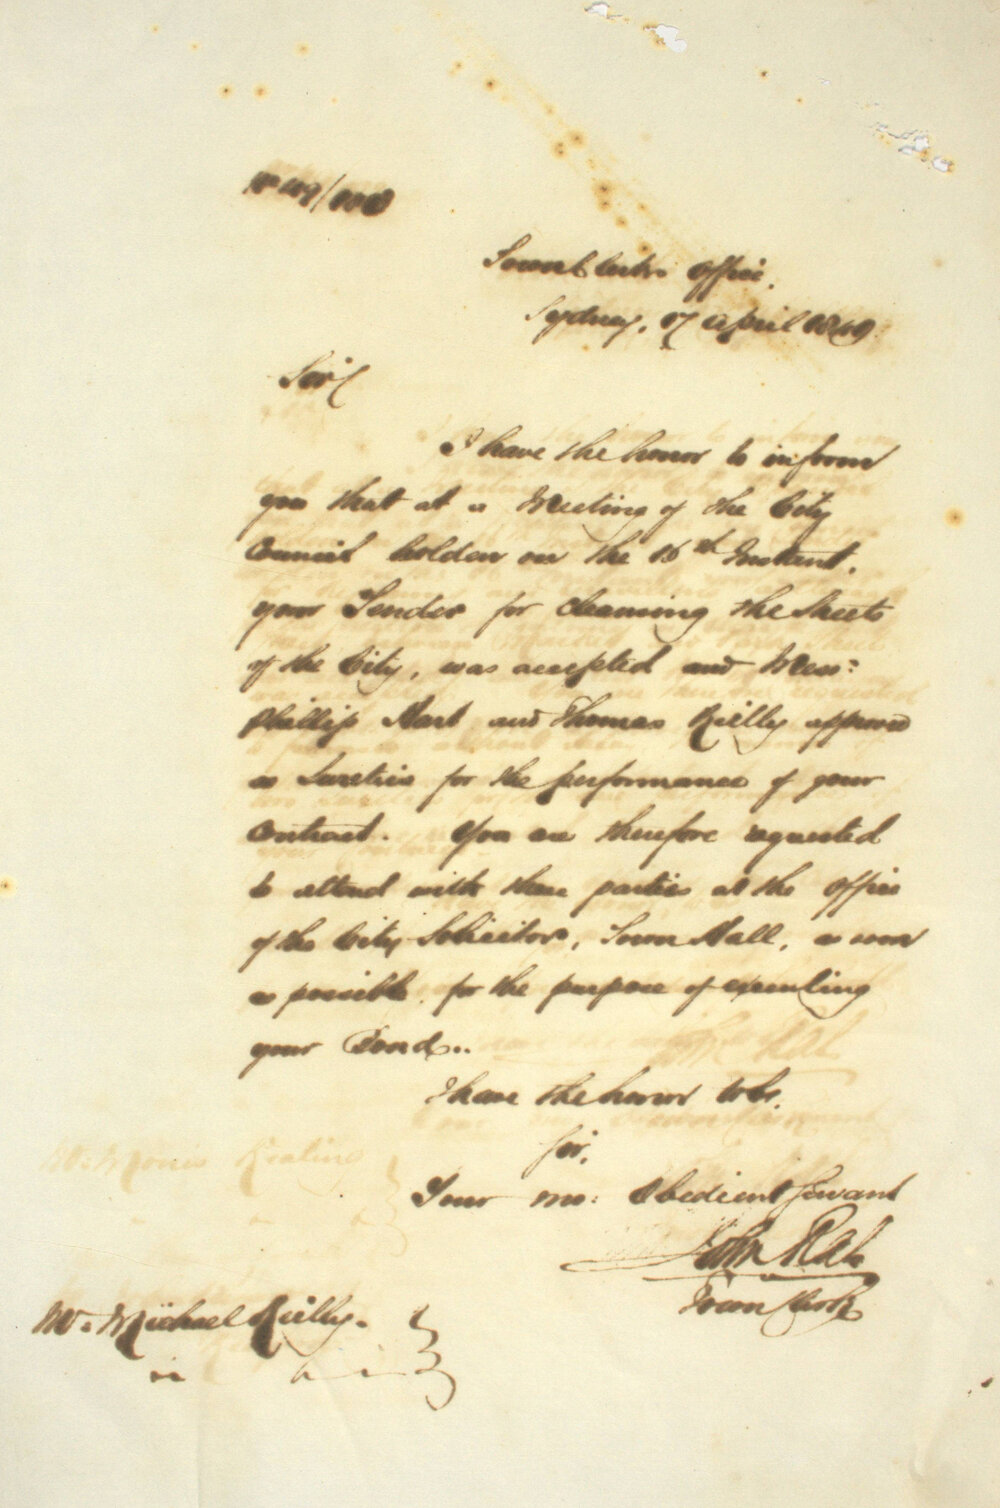 Town Clerk's Office,
Sydney, 17 April 1849.
Sir
I have the honor to inform
you that at a Meeting of the City
Council holden on the 16th Instant,
your Tender for cleansing the Streets
of the City, was accepted and Mess:
Phillip Hart and Thomas Rielly approved
as Sureties for the performance of your
Contract. You are therefore requested
to attend with these parties at the Office
of the City Solicitor, Town Hall, as soon
as possible, for the purpose of executing
your Bond..
I have the honor to be,
Sir,
Your mo: Obedient Servant
John Rae
Town Clerk
Mr. Michael Rielly.